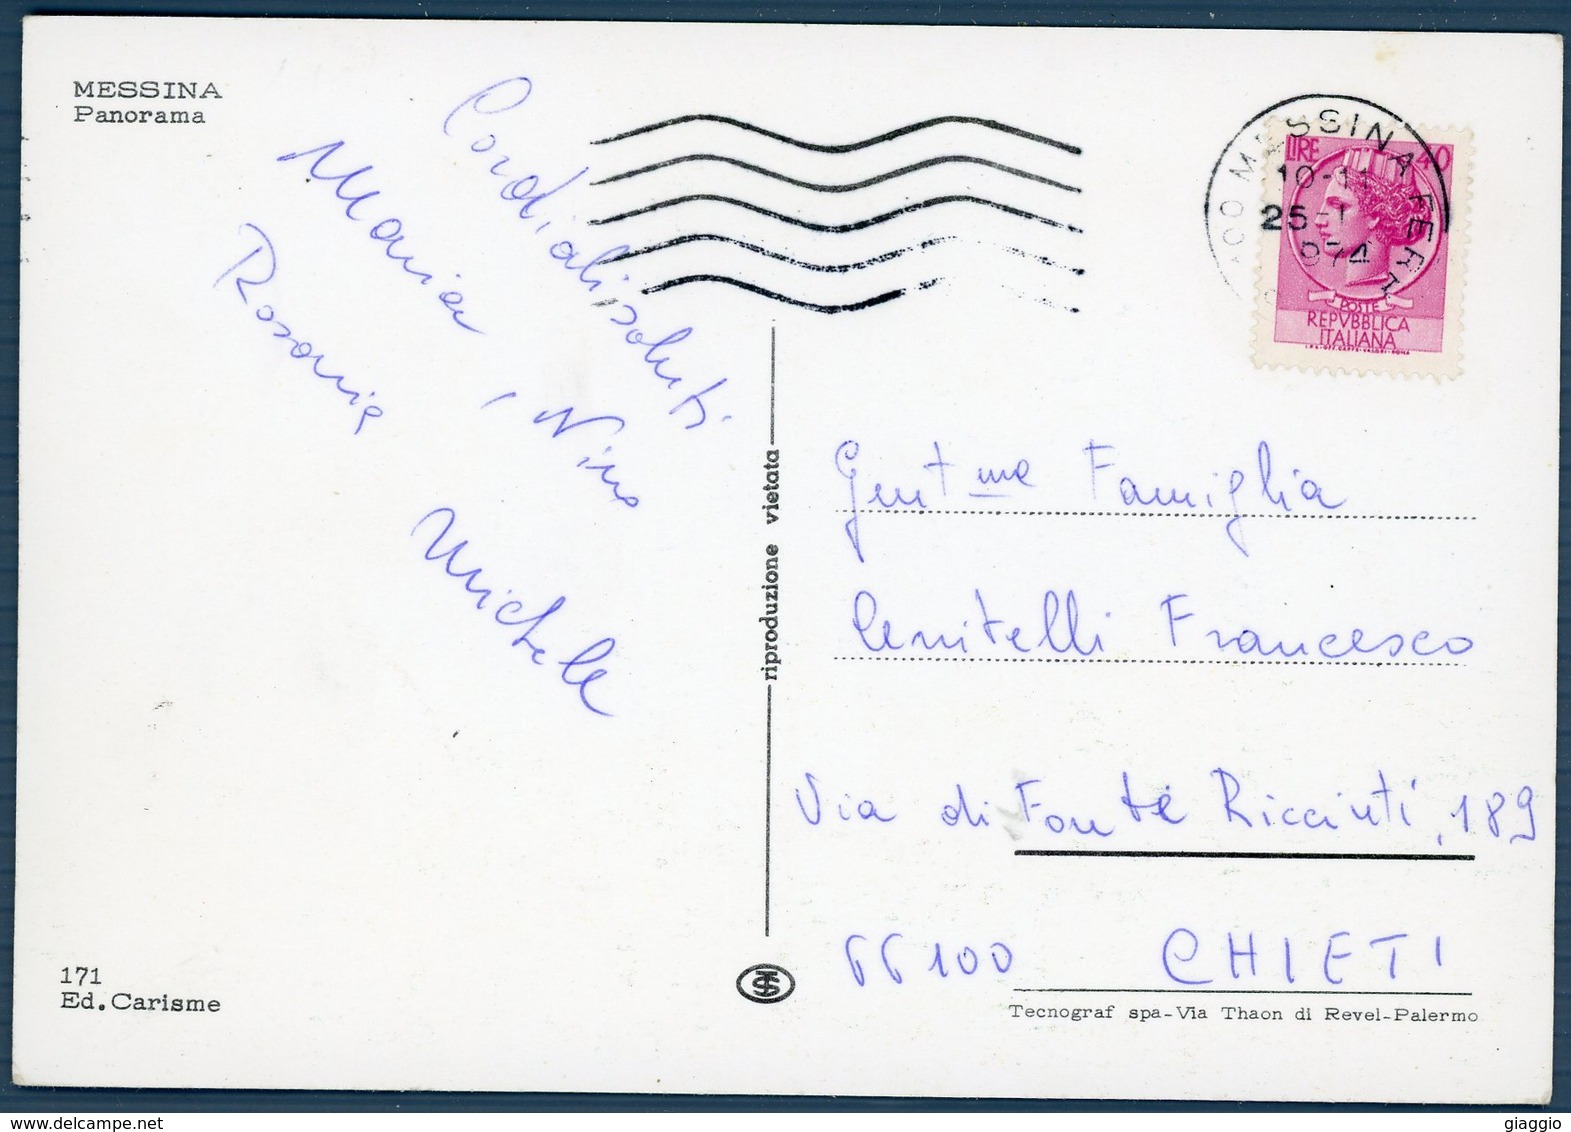 MESSINA
Panorama
Cordiali saluti
Maria, Nino
Rosaria
Michele
171
Ed. Carisme
riproduzione vietata
MESSINA FERR
10-11
25-1
974
LIRE 40
POSTE
REPVBBLICA
ITALIANA
I.P.S.-OFF. CARTE-VALORI-ROMA
Gent.me Famiglia
Francesco
Via di Fonte Ricciuti, 189
66100 CHIETI
Tecnograf spa-Via Thaon di Revel-Palermo
giaggio